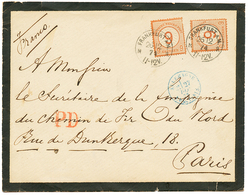 Franco
FRANKFURT A.M.
9
9
A Monsieur
P.D.
Le Secrétaire de la Compagnie
du Chemin de Fer du Nord
Rue de Dunkerque, 18.
Paris